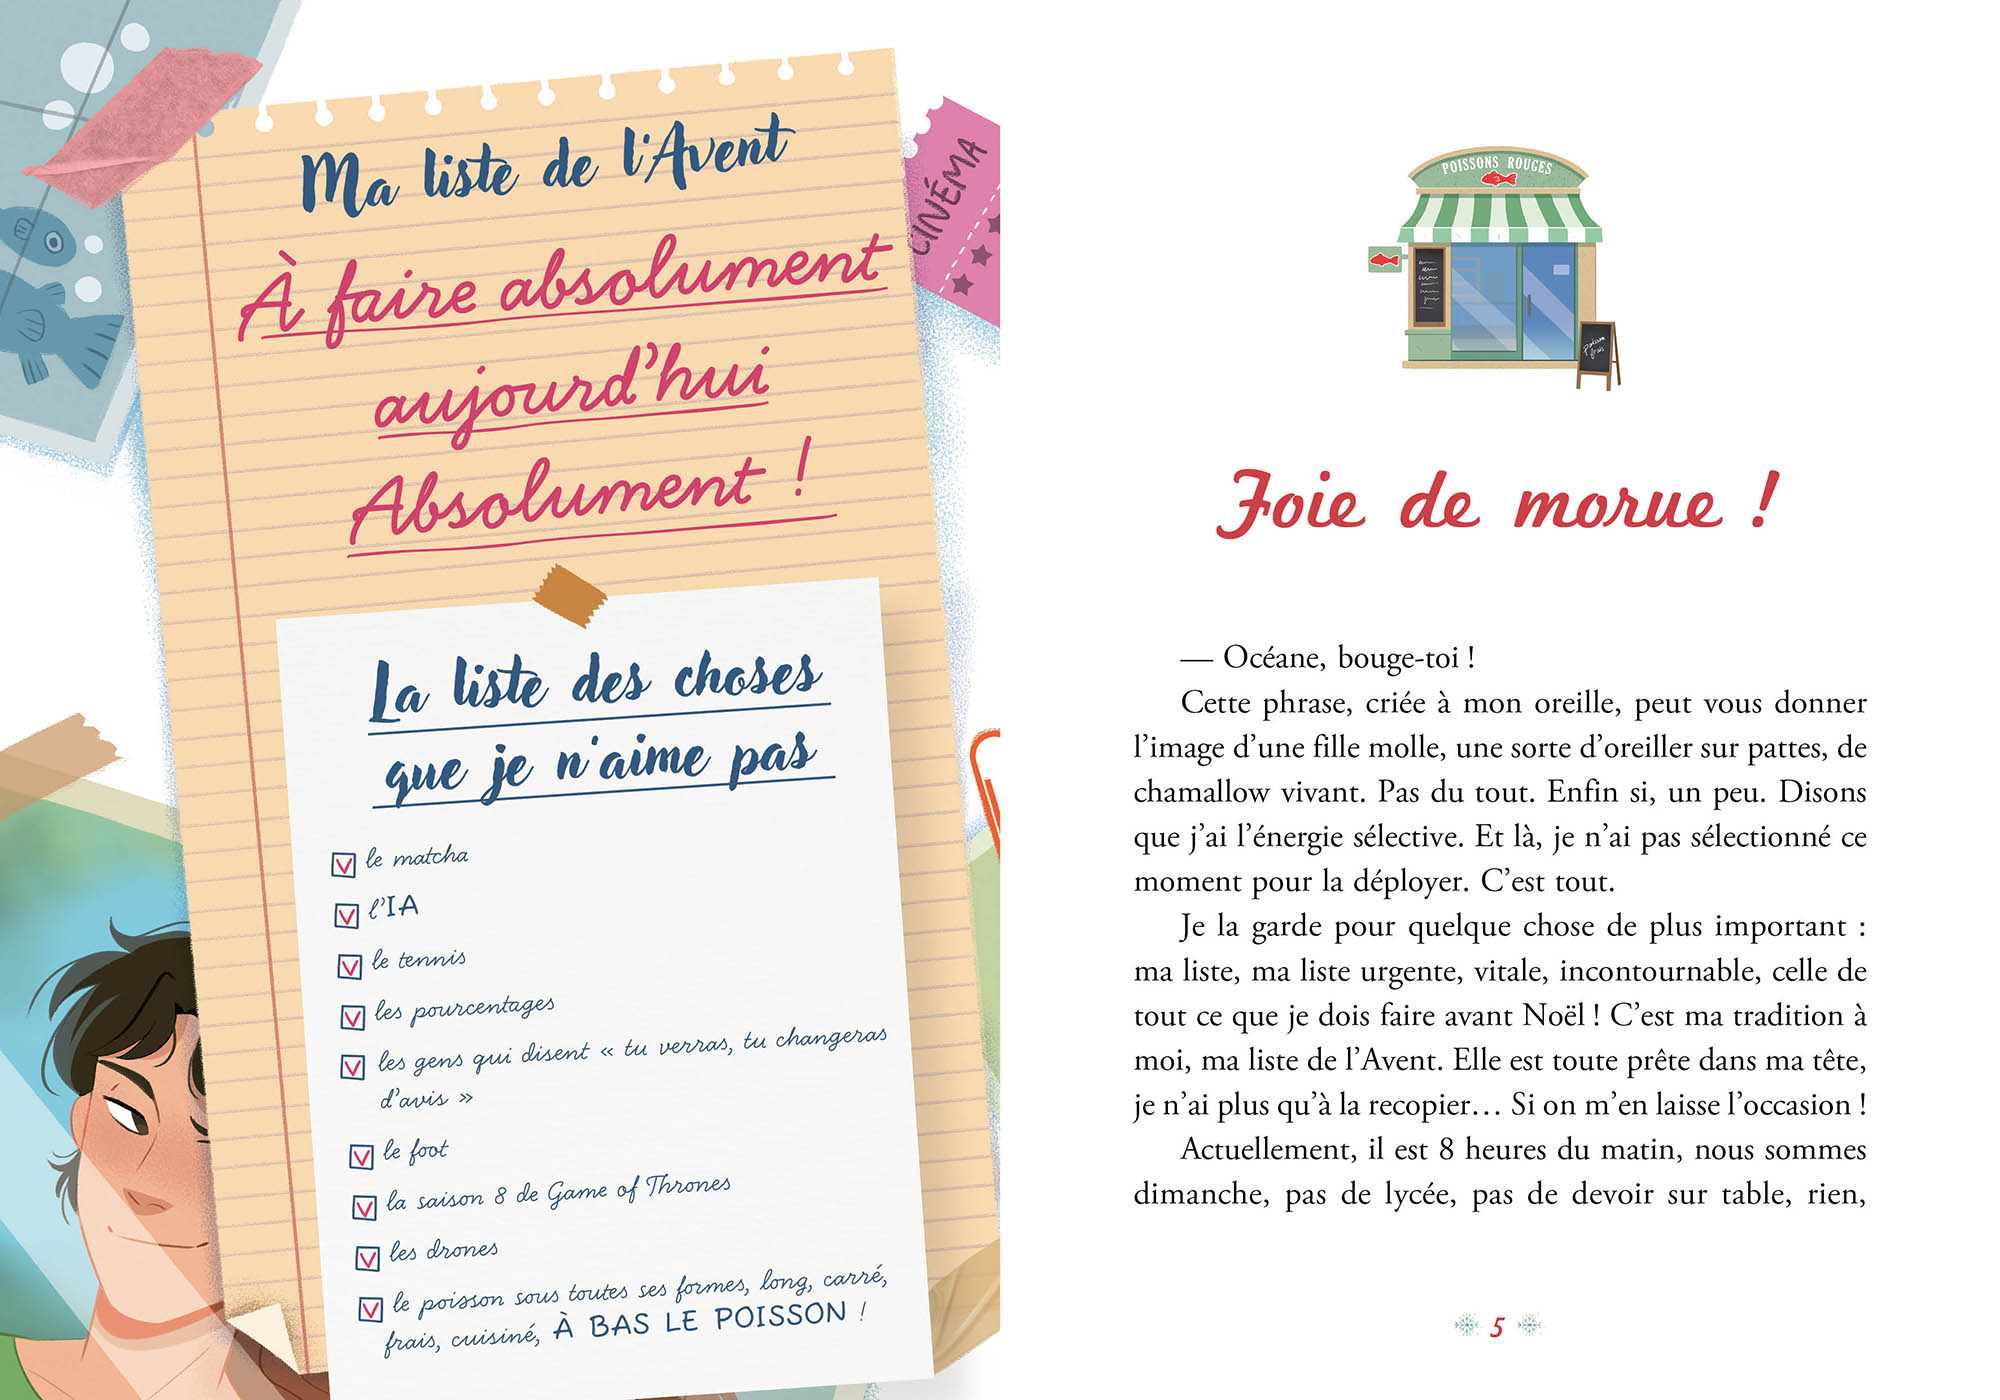 Ma liste de l'Avent
À faire absolument
aujourd'hui
Absolument !
CINÉMA
La liste des choses
que je n'aime pas
le matcha
l'IA
le tennis
les pourcentages
les gens qui disent « tu verras, tu changeras
d'avis »
le foot
la saison 8 de Game of Thrones
les drones
le poisson sous toutes ses formes, long, carré,
frais, cuisiné, À BAS LE POISSON !
POISSONS ROUGES
Poisson
frais
Foie de morue !
— Océane, bouge-toi !
Cette phrase, criée à mon oreille, peut vous donner
l'image d'une fille molle, une sorte d'oreiller sur pattes, de
chamallow vivant. Pas du tout. Enfin si, un peu. Disons
que j'ai l'énergie sélective. Et là, je n'ai pas sélectionné ce
moment pour la déployer. C'est tout.
Je la garde pour quelque chose de plus important :
ma liste, ma liste urgente, vitale, incontournable, celle de
tout ce que je dois faire avant Noël ! C'est ma tradition à
moi, ma liste de l'Avent. Elle est toute prête dans ma tête,
je n'ai plus qu'à la recopier… Si on m'en laisse l'occasion !
Actuellement, il est 8 heures du matin, nous sommes
dimanche, pas de lycée, pas de devoir sur table, rien,
5